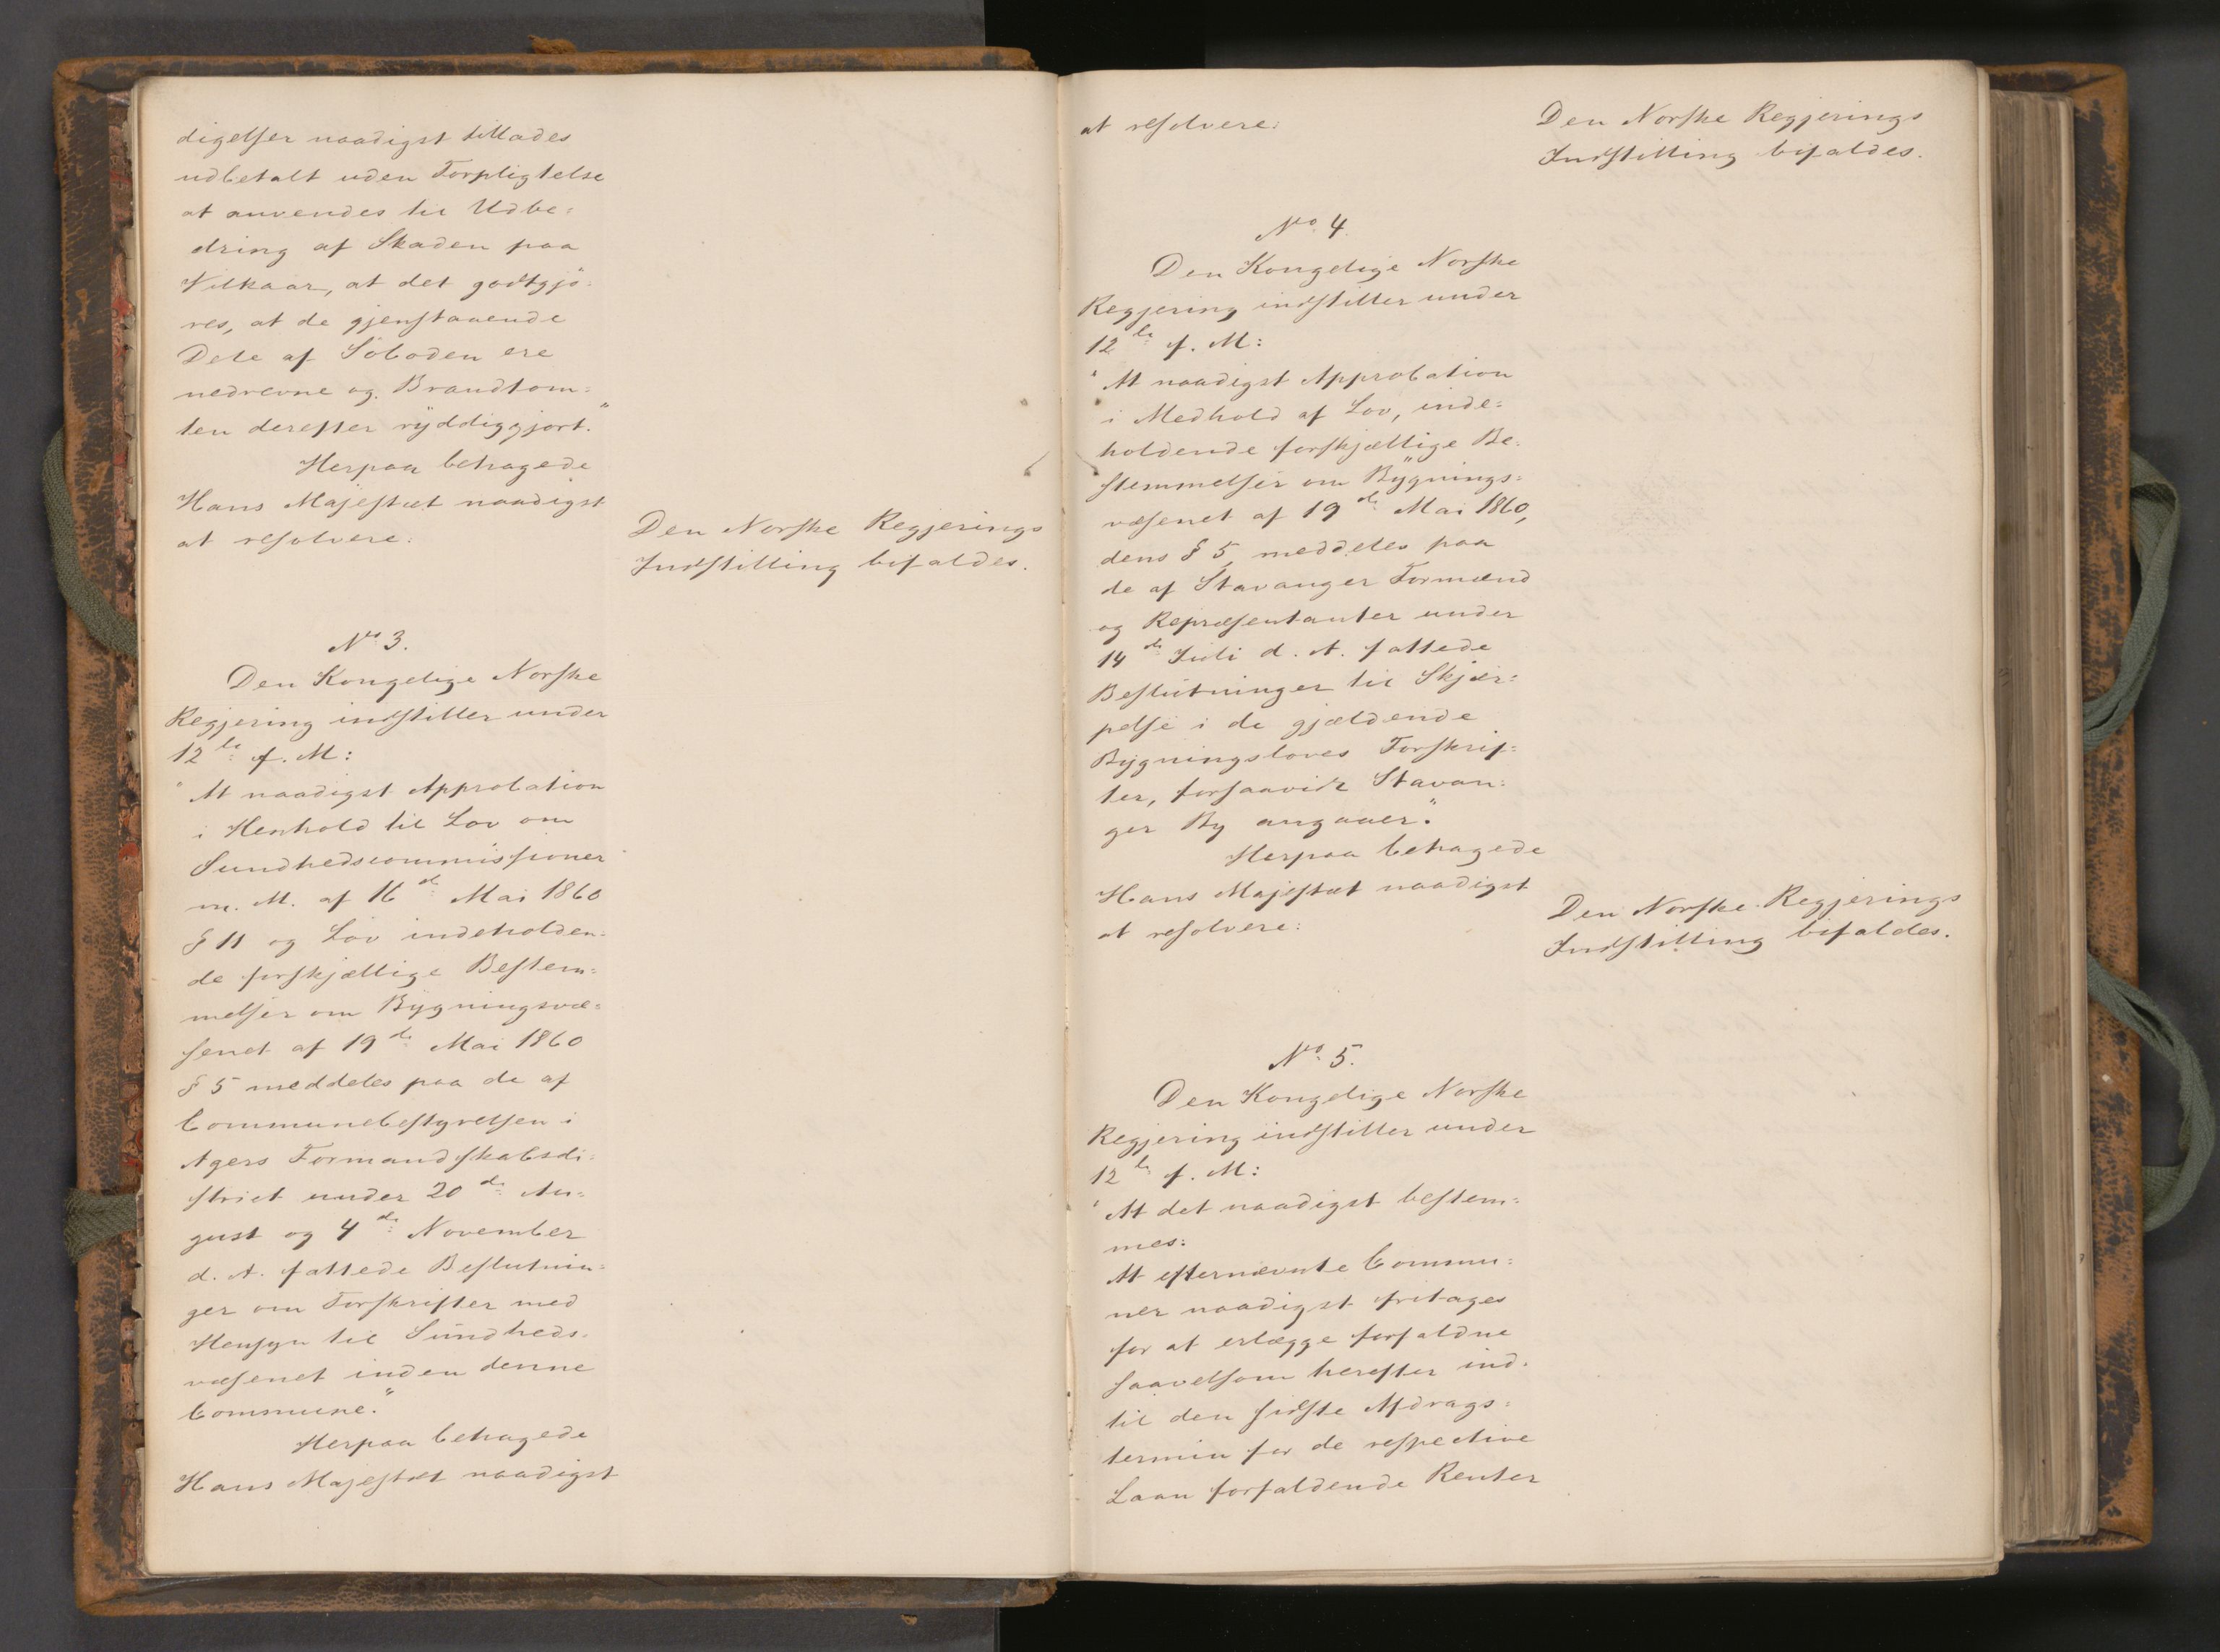 digelser naadigst tillades
udbetalt uden Forpligtelse
at anvendes til Udbe=
dring af Skaden paa
Vilkaar, at det godtgjö=
res, at de gjenstaaende
Dele af Söboden ere
nedrevne og Brandtom=
ten derefter ryddiggjort."
Herpaa behagede
Hans Majestæt naadigst
at resolvere:
Den Norske Regjerings
Indstilling bifaldes.
No 3.
Den Kongelige Norske
Regjering indstiller under
12te f. M:
"At naadigst Approbation
i Henhold til Lov om
Sundhedscommissioner
m. M. af 16de Mai 1860
§ 11 og Lov indeholden=
de forskjællige Bestem=
melser om Bygningsvæ=
senet af 19de Mai 1860
§ 5 meddeles paa de af
Communebestyrelsen i
Agers Formandskabsdi=
strict under 20de Au=
gust og 4de November
d. A. fattede Beslutnin=
ger om Forskrifter med
Hensyn til Sundheds=
væsenet inden denne
Commune."
Herpaa behagede
Hans Majestæt naadigst
at resolvere:
Den Norske Regjerings
Indstilling bifaldes.
No 4.
Den Kongelige Norske
Regjering indstiller under
12te f. M:
"At naadigst Approbation
i Medhold af Lov, inde=
holdende forskjællige Be=
stemmelser om Bygnings=
væsenet af 19de Mai 1860,
dens § 5, meddeles paa
de af Stavanger Formænd
og Repræsentanter under
14de Juli d. A. fattede
Beslutninger til Skjær=
pelse i de gjældende
Bygningsloves Forskrif=
ter, forsaavidt Stavan=
ger By angaaer."
Herpaa behagede
Hans Majestæt naadigst
at resolvere:
Den Norske Regjerings
Indstilling bifaldes.
No 5.
Den Kongelige Norske
Regjering indstiller under
12te f. M:
"At det naadigst bestem=
mes:
At efternævnte Commu=
ner naadigst fritages
for at erlægge forfaldne
saavelsom herefter ind=
til den sidste Afdrags=
termin for de respective
Laan forfaldende Renter